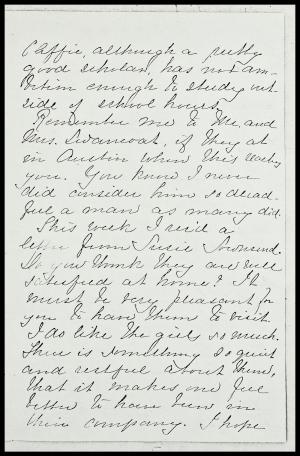 Caffie, although a pretty
good scholar, has not am-
bition enough to study out
side of school hours.
Remember me to Mr. and
Mrs. Swancoat, if they at
in Austin when this reaches
you. You know I never
did consider him so dread-
ful a man as many did.
This week I rec'd a
letter from Susie Townsend.
Do you think they are well
satisfied at home? It
must be very pleasant for
you to have them to visit.
I do like the girls so much.
There is something so quiet
and restful about them,
that it makes one feel
better to have been in
their company. I hope